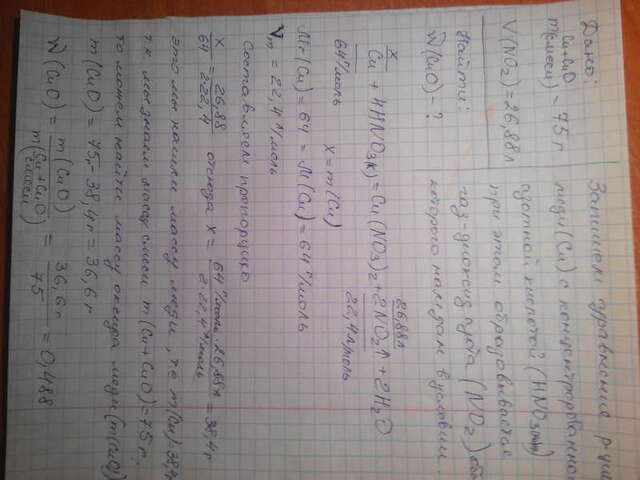 Дано:
Cu + CuO
m(смеси) = 75 г
V(NO2) = 26,88 л
Найти:
W(CuO) - ?
Запишем уравнение р-ции
меди (Cu) с концентрированной
азотной кислотой (HNO3(конц))
при этом образовывается
газ-диоксид азота (NO2)
которого нам дан в условии.
x 26,88л
Cu + 4HNO3(к) = Cu(NO3)2 + 2NO2↑ + 2H2O
64г/моль 22,4л/моль
x = m(Cu)
Mr(Cu) = 64 = M(Cu) = 64г/моль
Vm = 22,4 л/моль
Составляем пропорцию
x/64 = 26,88/2·22,4 отсюда x = 64г/моль·26,88л/2·22,4л/моль = 38,4г
это мы нашли массу меди, т.е m(Cu)=38,4г
т.к мы знаем массу смеси m(Cu+CuO)=75г.
то можем найти массу оксида меди (m(CuO))
m(CuO) = 75-38,4г = 36,6г
W(CuO) = m(CuO)/m(Cu+CuO)(смеси) = 36,6г/75 = 0,488